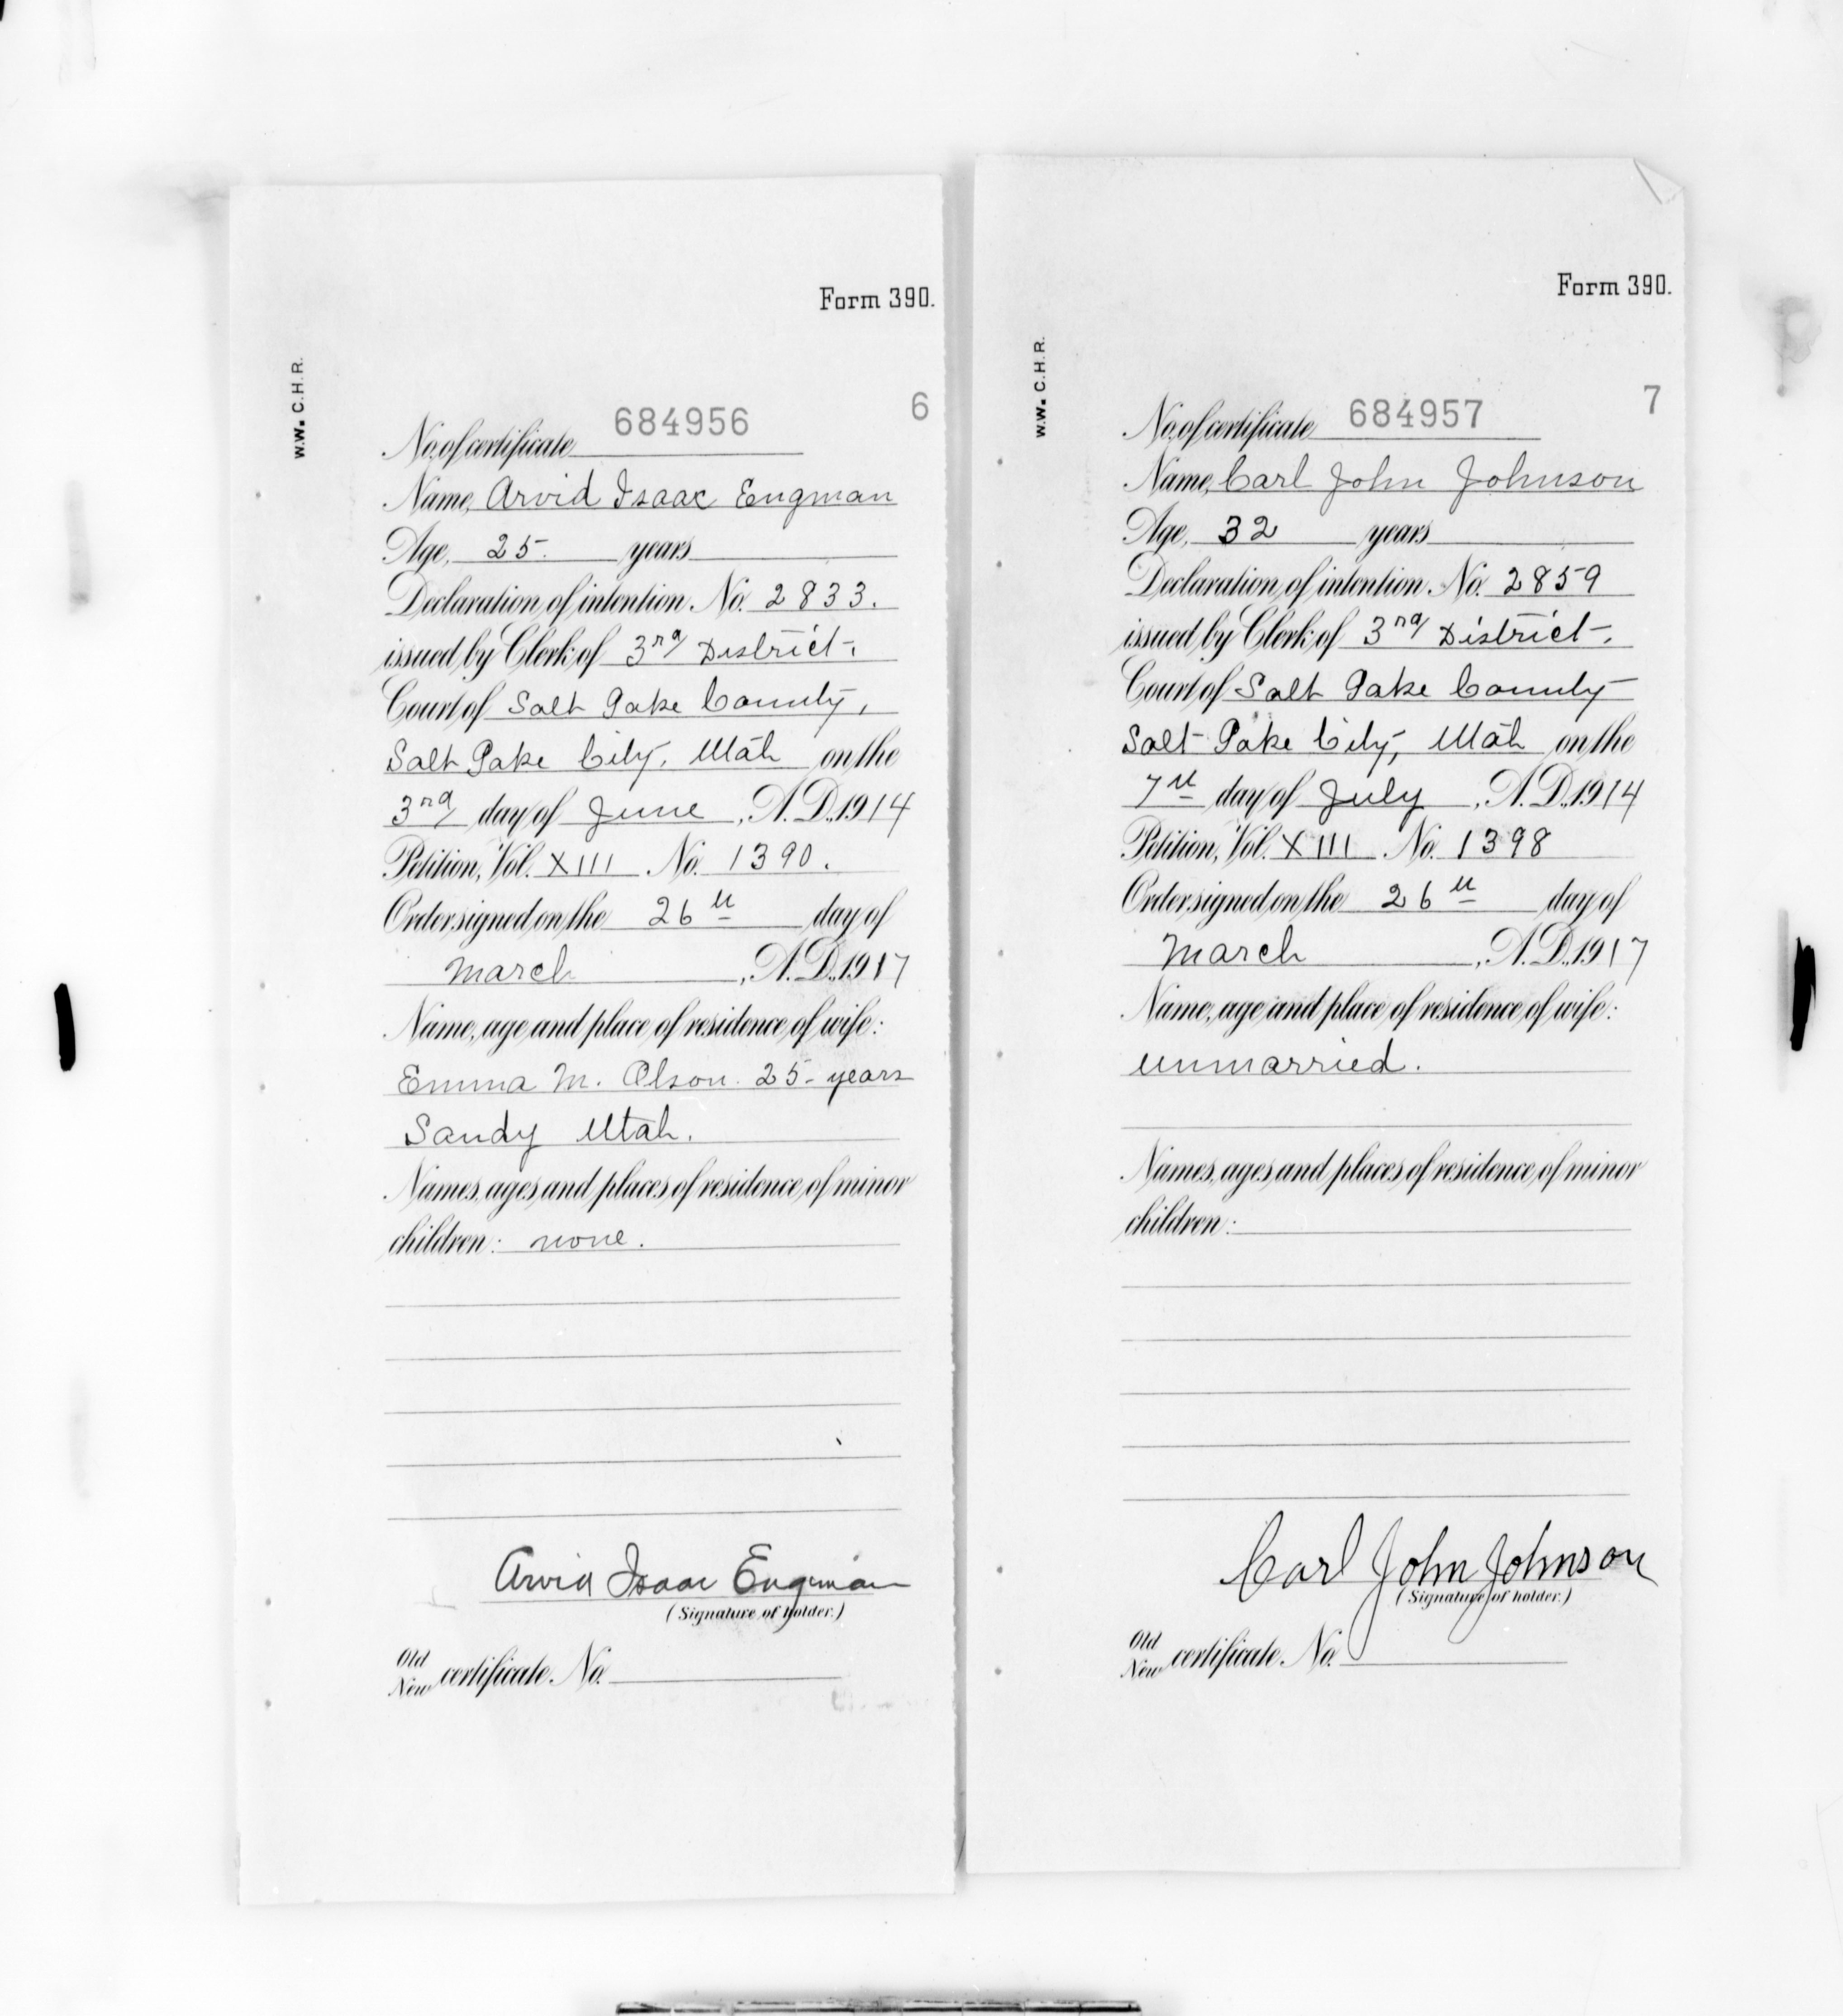 Form 390.
W.W. C.H.R.
6
No. of certificate 684956
Name, Arvid Isaac Engman
Age, 25. years
Declaration of intention No. 2833.
issued by Clerk of 3rd District.
Court of Salt Lake County,
Salt Lake City, Utah on the
3rd day of June, A.D. 1914
Petition, Vol. XIII No. 1390.
Order signed on the 26th day of
March, A.D. 1917
Name, age and place of residence of wife:
Emma M. Olson. 25- years
Sandy Utah.
Names, ages and places of residence of minor
children: none.
Arvid Isaac Engman
(Signature of holder.)
Old
New certificate No.
Form 390.
W.W. C.H.R.
7
No. of certificate 684957
Name, Carl John Johnson
Age, 32 years
Declaration of intention No. 2859
issued by Clerk of 3rd District.
Court of Salt Lake County
Salt Lake City, Utah on the
7th day of July, A.D. 1914
Petition, Vol. XIII No. 1398
Order signed on the 26th day of
March, A.D. 1917
Name, age and place of residence of wife:
unmarried.
Names, ages and places of residence of minor
children:
Carl John Johnson
(Signature of holder.)
Old
New certificate No.